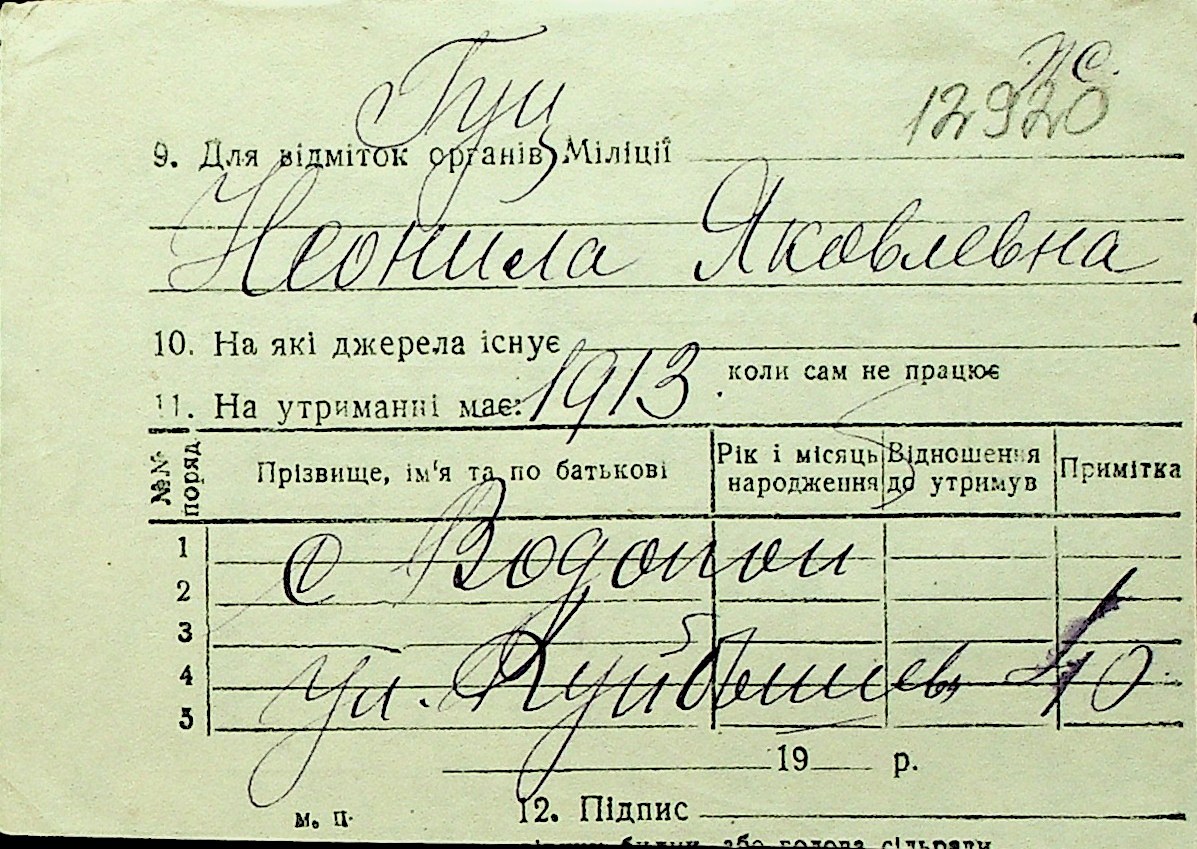 Гуц
Ис.
12920
9. Для відміток органів Міліції
Неонила Яковлевна
10. На які джерела існує
коли сам не працює
11. На утриманні має:
1913
№№ поряд
Прізвище, ім'я та по батькові
Рік і місяць народження
Відношення до утримув
Примітка
1
с Водопои
2
3
4
ул. Куйбышев
10
5
19 р.
м. п.
12. Підпис
або голова сільради